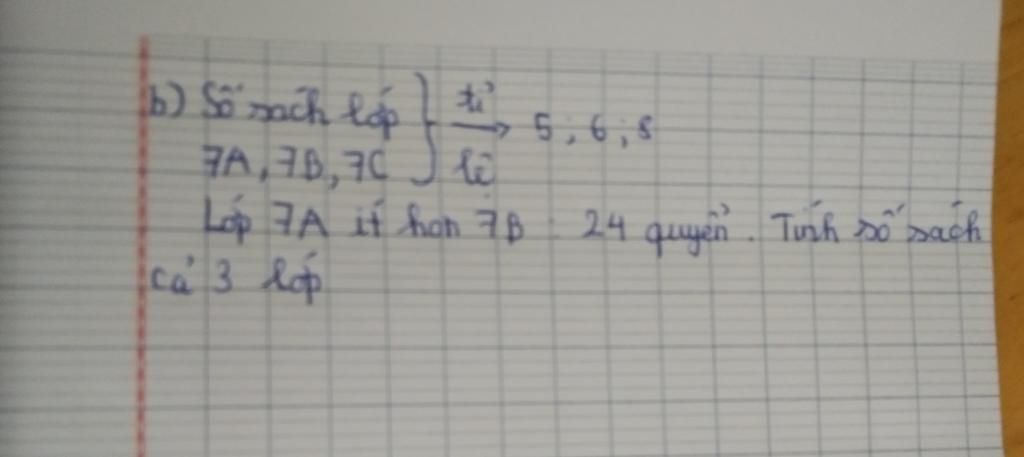 b) Số sách lớp } tỉ → 5 ; 6 ; 8
7A, 7B, 7C } lệ
Lớp 7A ít hơn 7B : 24 quyển. Tính số sách
cả 3 lớp